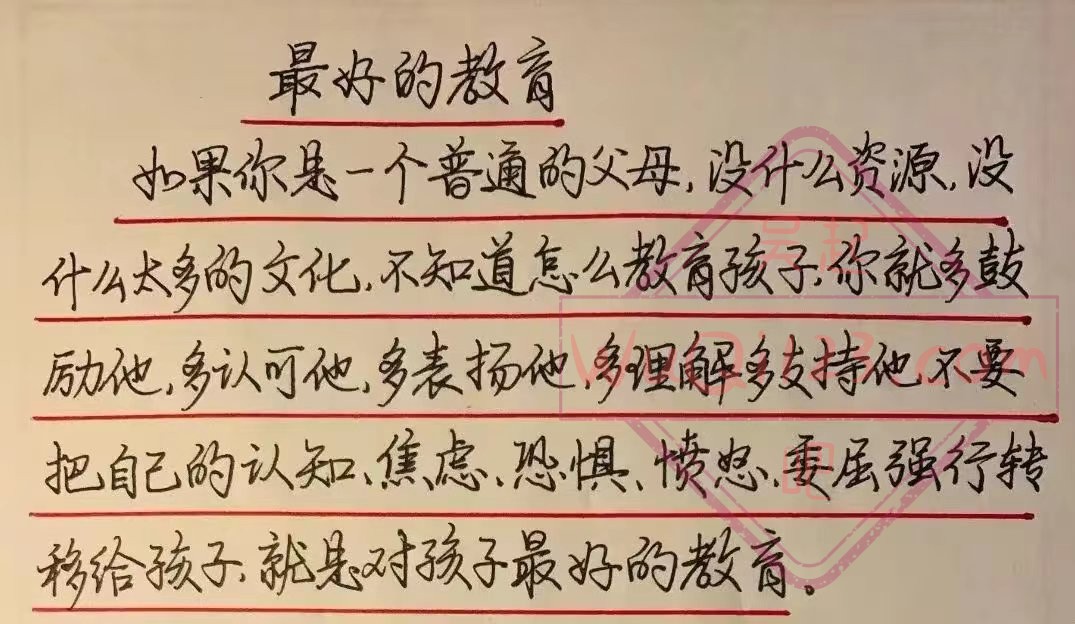 最好的教育
如果你是一个普通的父母,没什么资源,没
什么太多的文化,不知道怎么教育孩子,你就多鼓
励他,多认可他,多表扬他,多理解多支持他,不要
把自己的认知、焦虑、恐惧、愤怒、委屈强行转
移给孩子,就是对孩子最好的教育。